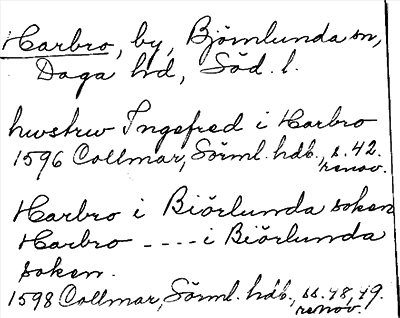 Harbro, by, Björnlunda sn,
Daga hd, Söd. l.
hwstrw Ingefred i Harbro
1596 Collmar, Sörml. hdb., s. 42.
renov.
Harbro i Biörlunda soken
Harbro ---- i Biörlunda
soken.
1598 Collmar, Sörml. hdb., ss. 48, 49.
renov.